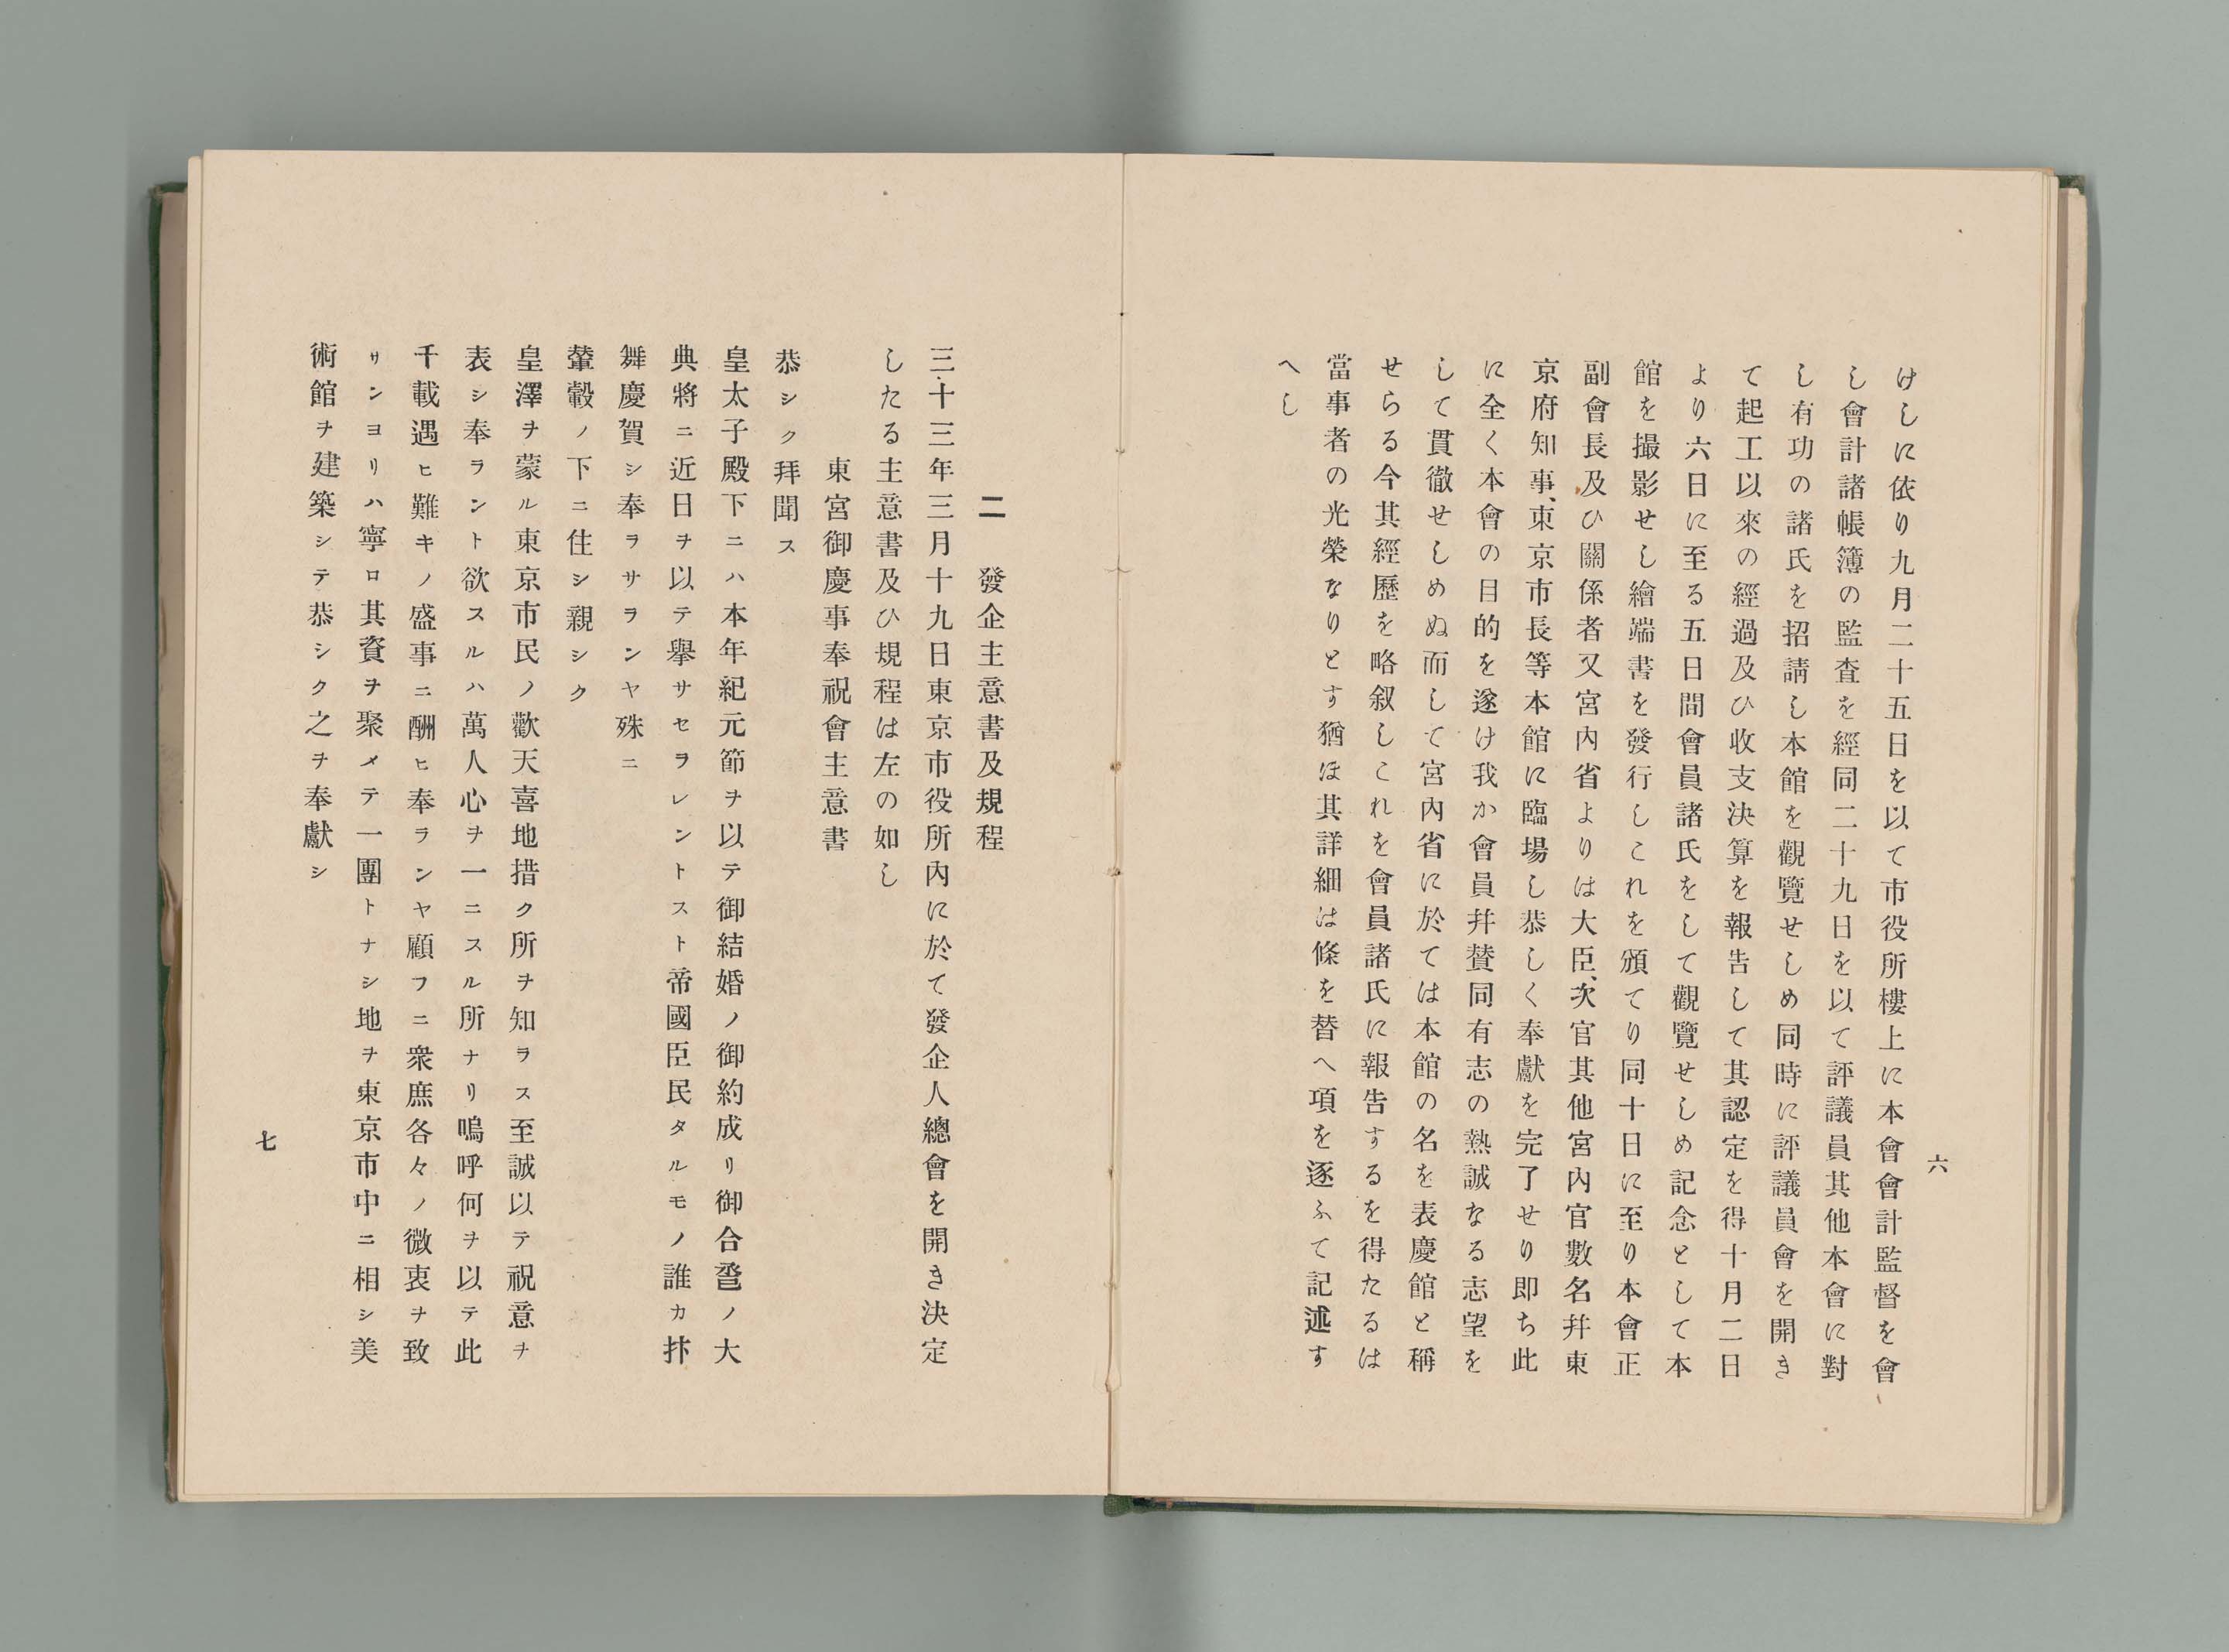 六
けしに依り九月二十五日を以て市役所樓上に本會會計監督を會
し會計諸帳簿の監査を經同二十九日を以て評議員其他本會に對
し有功の諸氏を招請し本館を觀覽せしめ同時に評議員會を開き
て起工以來の經過及ひ收支決算を報告して其認定を得十月二日
より六日に至る五日間會員諸氏をして觀覽せしめ記念として本
館を撮影せし繪端書を發行しこれを頒てり同十日に至り本會正
副會長及ひ關係者又宮内省よりは大臣、次官其他宮内官數名幷東
京府知事、東京市長等本館に臨場し恭しく奉獻を完了せり即ち此
に全く本會の目的を遂け我か會員幷賛同有志の熱誠なる志望を
して貫徹せしめぬ而して宮内省に於ては本館の名を表慶館と稱
せらる今其經歷を略叙しこれを會員諸氏に報告するを得たるは
當事者の光榮なりとす猶ほ其詳細は條を替へ項を逐ふて記述す
へし
二　發企主意書及規程
三十三年三月十九日東京市役所内に於て發企人總會を開き決定
したる主意書及ひ規程は左の如し
東宮御慶事奉祝會主意書
恭シク拜聞ス
皇太子殿下ニハ本年紀元節ヲ以テ御結婚ノ御約成リ御合巹ノ大
典將ニ近日ヲ以テ擧サセヲレントスト帝國臣民タルモノ誰カ抃
舞慶賀シ奉ラサランヤ殊ニ
輦轂ノ下ニ住シ親シク
皇澤ヲ蒙ル東京市民ノ歡天喜地措ク所ヲ知ラス至誠以テ祝意ヲ
表シ奉ラント欲スルハ萬人心ヲ一ニスル所ナリ嗚呼何ヲ以テ此
千載遇ヒ難キノ盛事ニ酬ヒ奉ランヤ顧フニ衆庶各々ノ微衷ヲ致
サンヨリハ寧ロ其資ヲ聚メテ一團トナシ地ヲ東京市中ニ相シ美
術館ヲ建築シテ恭シク之ヲ奉獻シ
七